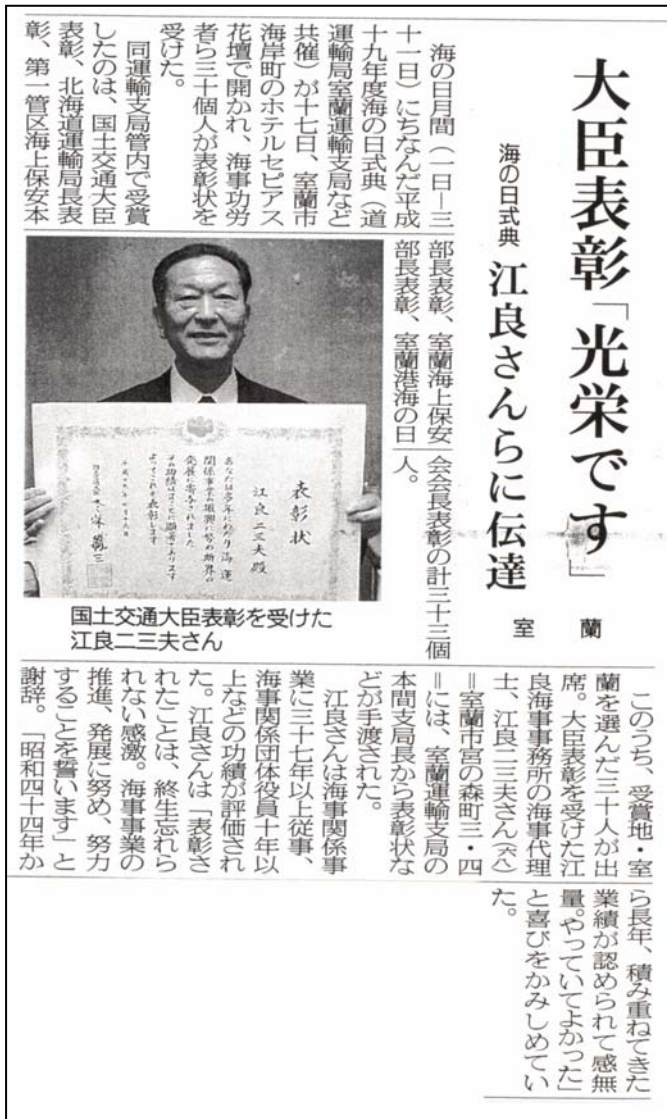 大臣表彰「光栄です」
海の日式典
江良さんらに伝達
室蘭
海の日月間（一日―三
十一日）にちなんだ平成
十九年度海の日式典（道
運輸局室蘭運輸支局など
共催）が十七日、室蘭市
海岸町のホテルセピアス
花壇で開かれ、海事功労
者ら三十個人が表彰状を
受けた。
同運輸支局管内で受賞
したのは、国土交通大臣
表彰、北海道運輸局長表
彰、第一管区海上保安本
部長表彰、室蘭海上保安
部長表彰、室蘭港海の日
会会長表彰の計三十三個
人。
表彰状
江良二三夫殿
あなたは多年にわたり海運
関係事業の振興に努め斯界の
発展に寄与されました
その功績はまことに顕著であります
よってこれを表彰します
国土交通大臣表彰を受けた
江良二三夫さん
このうち、受賞地・室
蘭を選んだ三十人が出
席。大臣表彰を受けた江
良海事事務所の海事代理
士、江良二三夫さん（六八）
＝室蘭市宮の森町三・四
＝には、室蘭運輸支局の
本間支局長から表彰状な
どが手渡された。
江良さんは海事関係事
業に三十七年以上従事、
海事関係団体役員十年以
上などの功績が評価され
た。江良さんは「表彰さ
れたことは、終生忘れら
れない感激。海事事業の
推進、発展に努め、努力
することを誓います」と
謝辞。「昭和四十四年か
ら長年、積み重ねてきた
業績が認められて感無
量。やっていてよかった」
と喜びをかみしめてい
た。